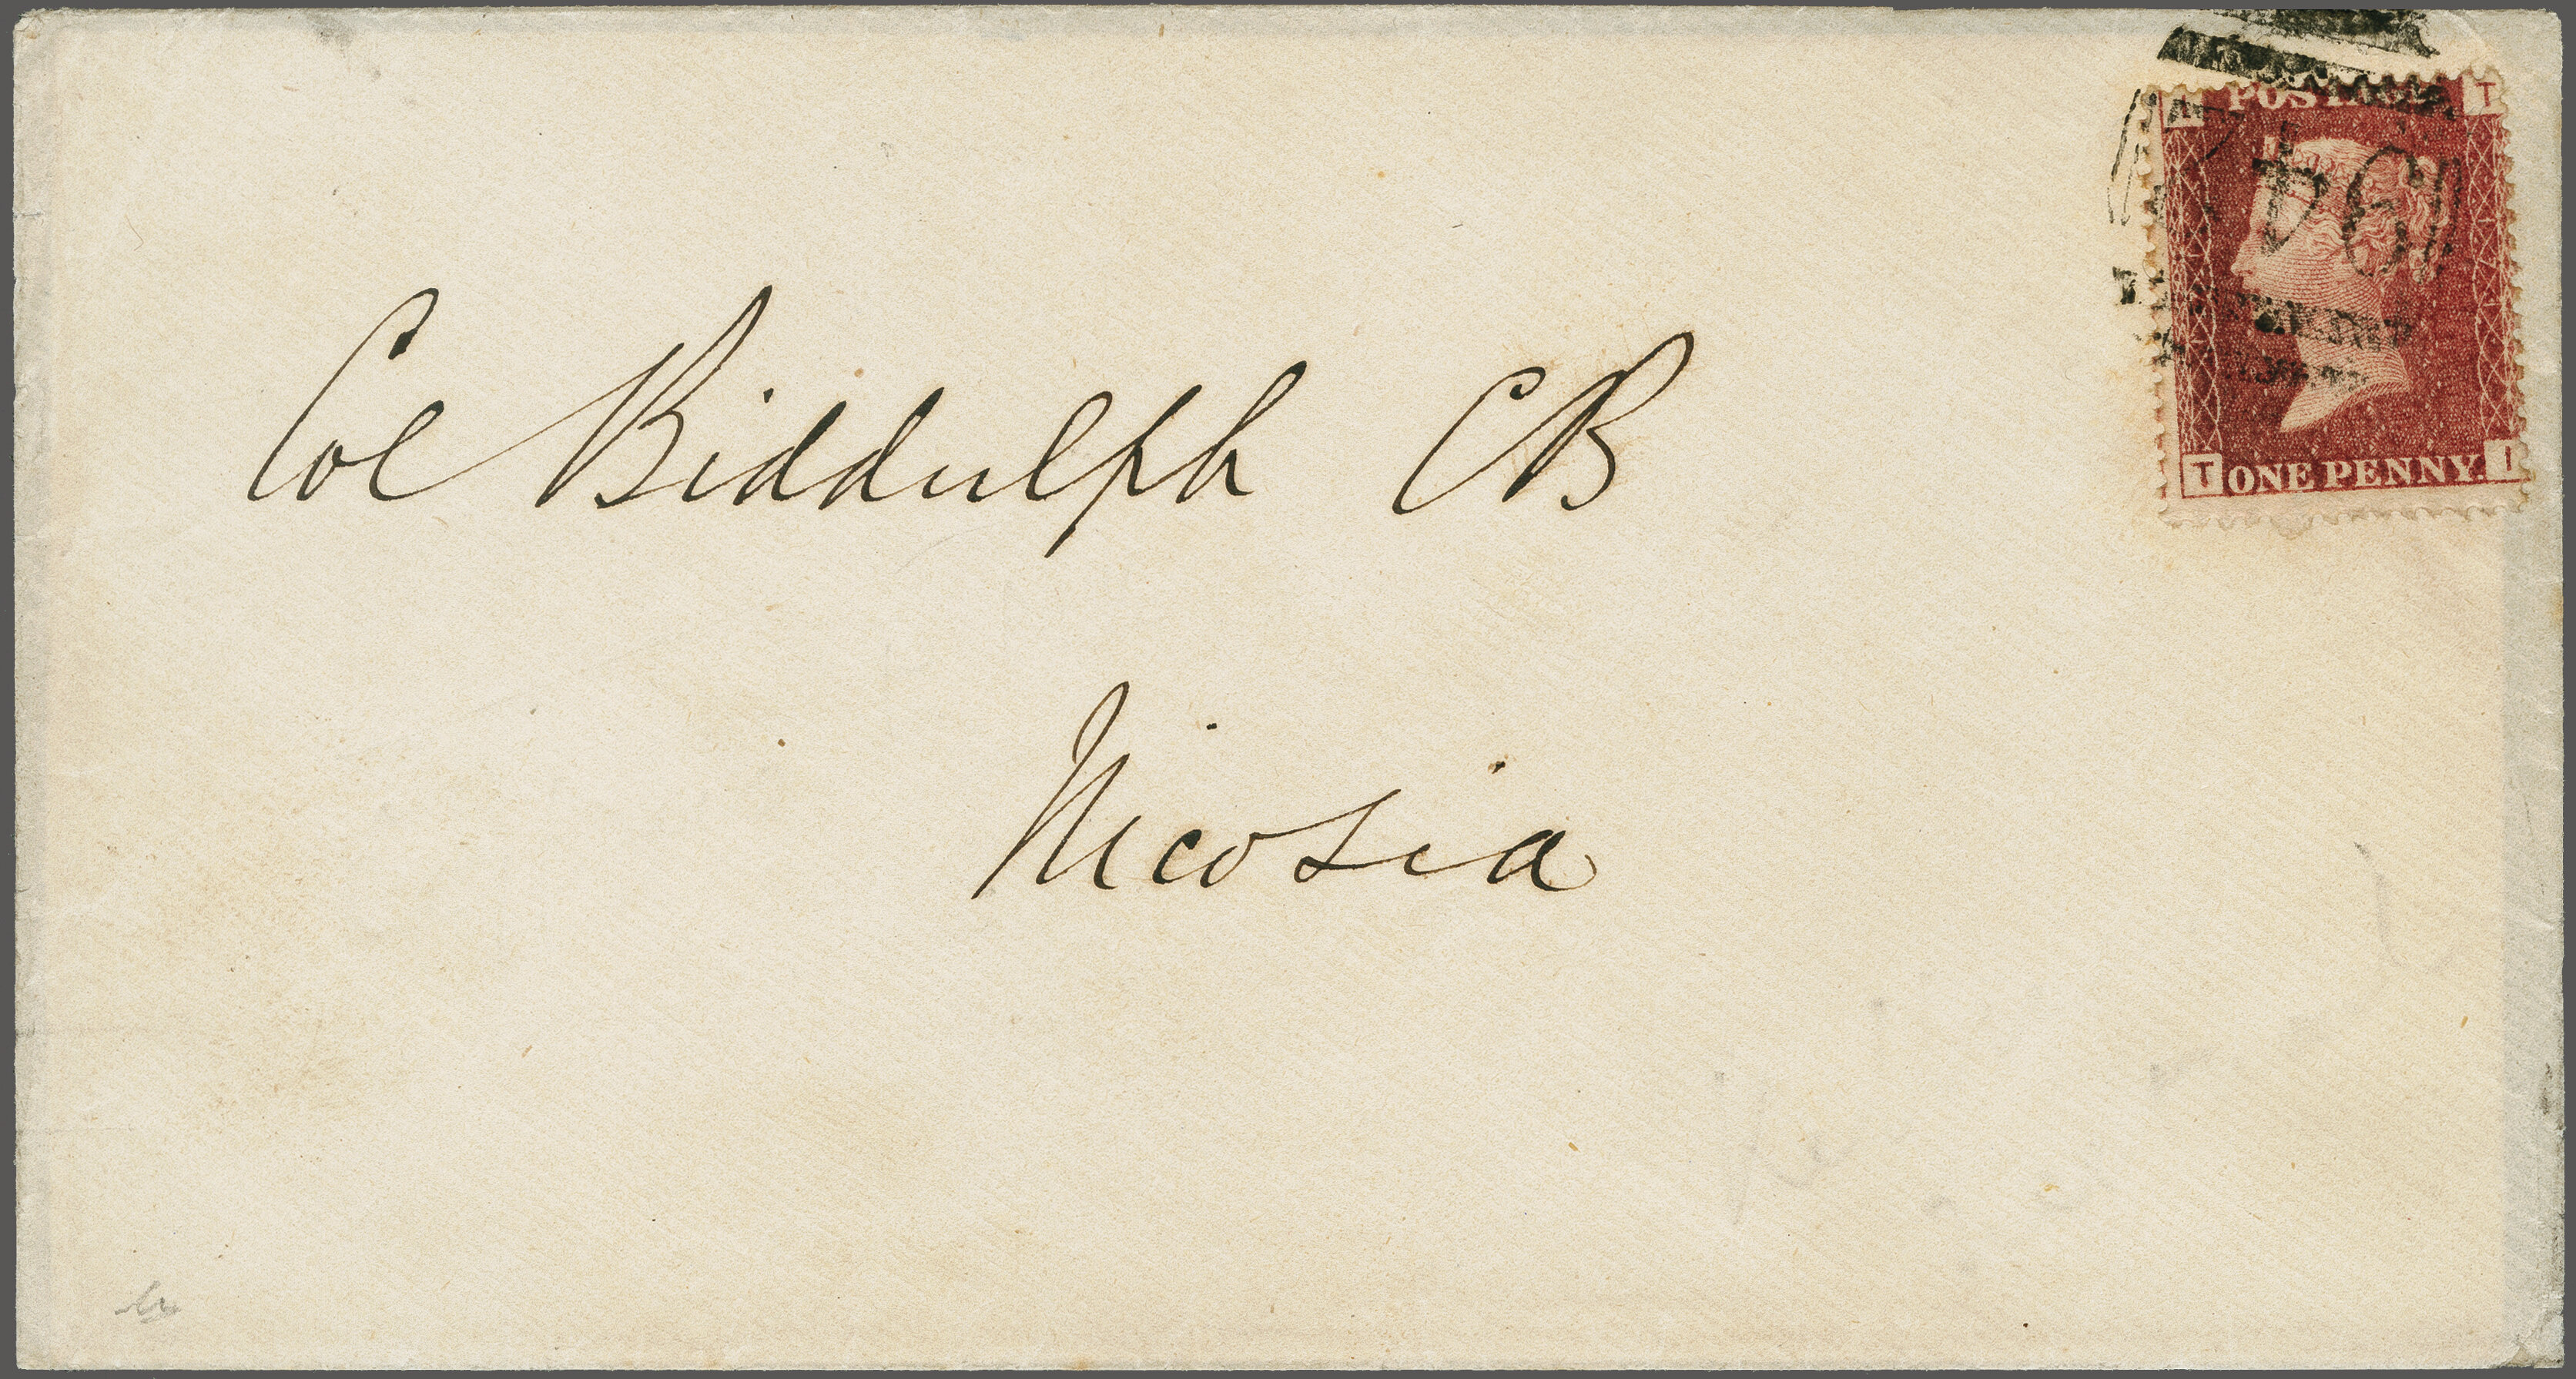 POSTAGE
T
Col Biddulph CB
T ONE PENNY. I
Nicosia